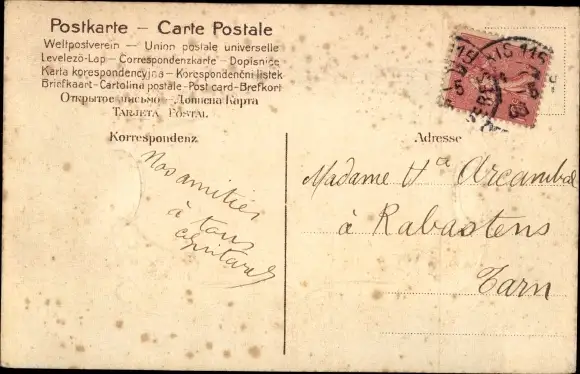 Postkarte – Carte Postale
Weltpostverein – Union postale universelle
Levelező-Lap – Correspondenzkarte – Dopisnice
Karta korespondencyjna – Korespondenční listek
Briefkaart – Cartolina postale – Post card – Brefkort
Открытое письмо – Дописна Карта
Tarjeta Postal
Korrespondenz
Adresse
Nos amitiés
à tous
Madame Vta Arcambal
à Rabastens
Tarn